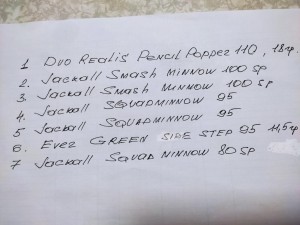 1 Duo Realis Pencil Popper 110, 18гр.
2. Jackall Smash Minnow 100 SP
3 Jackall Smash Minnow 100 SP
4. Jackall SQUADMINNOW 95
5 Jackall SQUADMINNOW 95
6. Ever GREEN SIDE STEP 95 11,5гр
7 Jackall Squad Minnow 80 SP